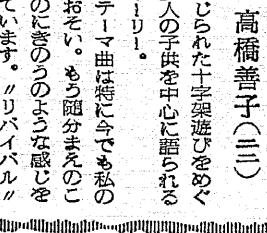 高橋善子(二二)
じられた十字架遊びをめぐ
人の子供を中心に語られる
ーリー。
テーマ曲は特に今でも私の
おそい。もう随分まえのこ
のにきのうのような感じを
ています。〃リバイバル〃